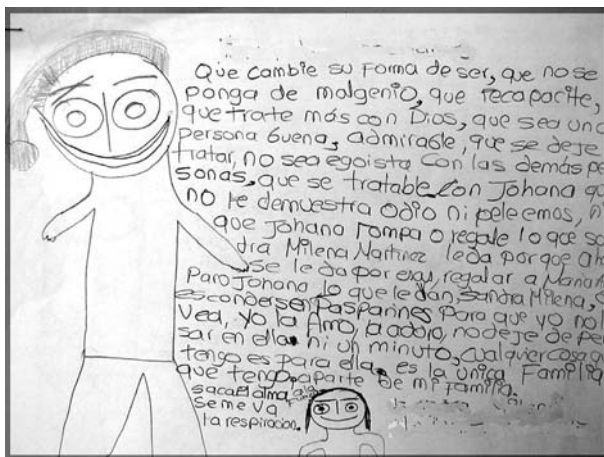 Que cambie su forma de ser, que no se
ponga de malgenio, que recapacite,
que trate más con Dios, que sea una
persona buena, admirable, que se deje
tratar, no sea egoista con las demás pe
sonas, que se tratable con Johana
no le demuestra odio ni peleemos,
que Johana rompa o regale lo que
dra Milena Martinez le da porque
se le da por esas, regalar a
Paro Johana lo que le dan, sandra Milena,
esconderse Pasparines para que yo no
Vea, yo la Amo, la adoro, no deje de pe
sar en ella. ni un minuto, cualquier cosa
tengo es para ella. es la única Familia
que tengo, aparte de mi familia.
saca el alma,
Se me va
la respiracion.